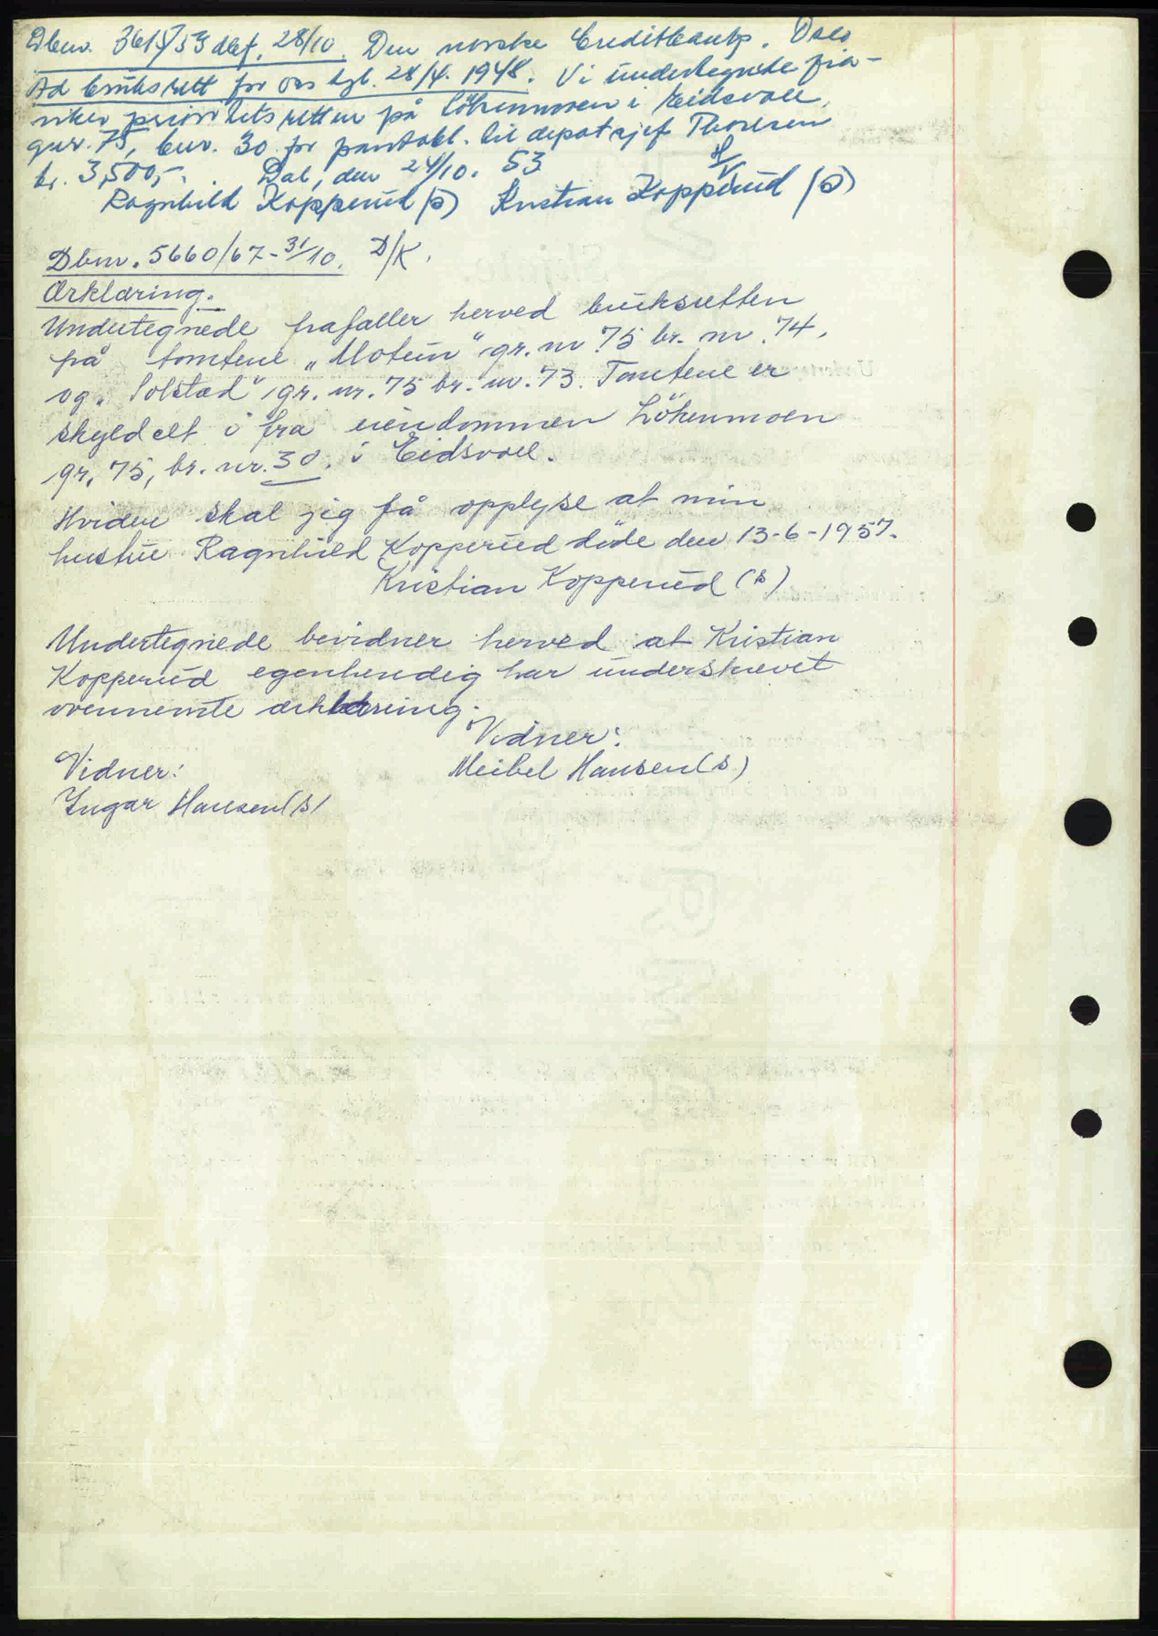 Dbnr. 3615/53 dbf. 28/10. Den norske Creditbank. Oslo
Ad bruksrett for oss tgl. 28/4. 1948. Vi undertegnede fra-
viker prioritetsretten på Løkenmoen i Eidsvoll,
gnr. 75, bnr. 30 for pantobl. til depotsjef Thoresen
kr. 3,500,-. Dal, den 24/10. 53
Ragnhild Kopperud (s) Kristian Kopperud (s)
Dbnr. 5660/67-31/10. D/K.
Ærklæring.
Undertegnede frafaller herved bruksretten
på tomtene „Moteim" gr. nr. 75 br. nr. 74.
og „Solstad" gr. nr. 75 br. nr. 73. Tomtene er
skyldelt i fra eiendommen Løkenmoen
gr. 75, br. nr. 30. i Eidsvoll.
Hvider skal jeg få opplyse at min
hustru Ragnhild Kopperud døde den 13-6-1957.
Kristian Kopperud (s)
Undertegnede bevidner herved at Kristian
Kopperud egenhendig har underskrevet
ovennemte ærklæring.
Vidner:
Meibel Hansen (s)
Vidner:
Yngar Hansen (s)